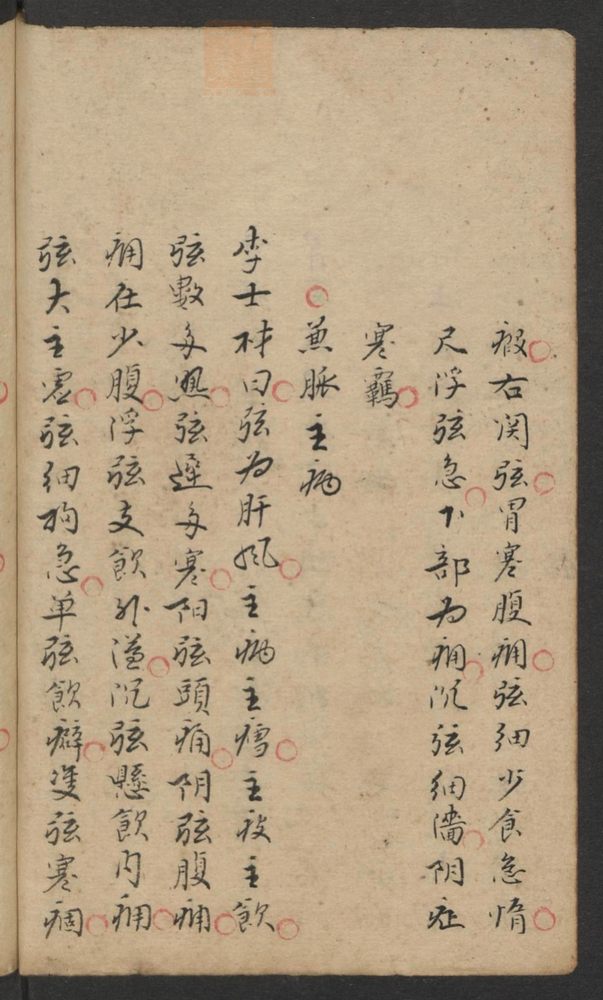 瘕右関弦胃寒腹痛弦細少食怠惰
尺浮弦急下部为痛沉弦細濇阴症
寒羈
兼脈主病
李士材曰弦为肝風主病主癆主痰主飲
弦數多熱弦遲多寒阳弦頭痛阴弦腹痛
痛在少腹浮弦支飲外溢沉弦懸飲内痛
弦大主虚弦細拘急単弦飲癖雙弦寒痼